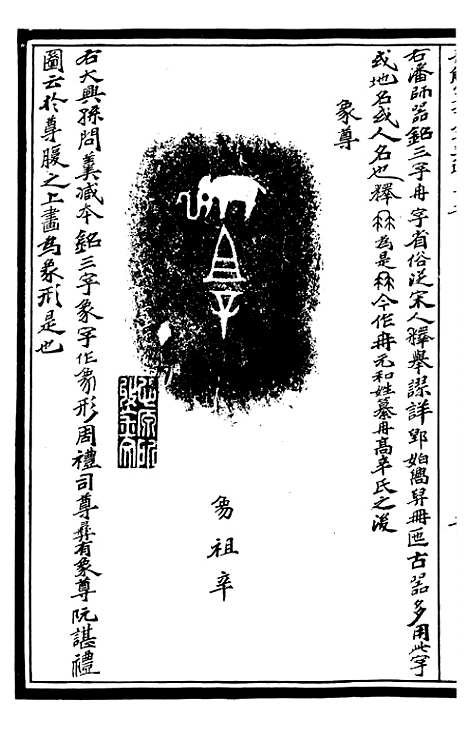 右潘師器銘三字冉字省俗從宋人釋舉謬詳鄧姞鬲冉冊匜古器多用此字
或地名或人名也釋𠕋為是𠕋今作冉元和姓纂冉高辛氏之後
象尊
象祖辛
右大興孫問羹藏本銘三字象字作象形周禮司尊彝有象尊阮諶禮
圖云於尊腹之上畫為象形是也